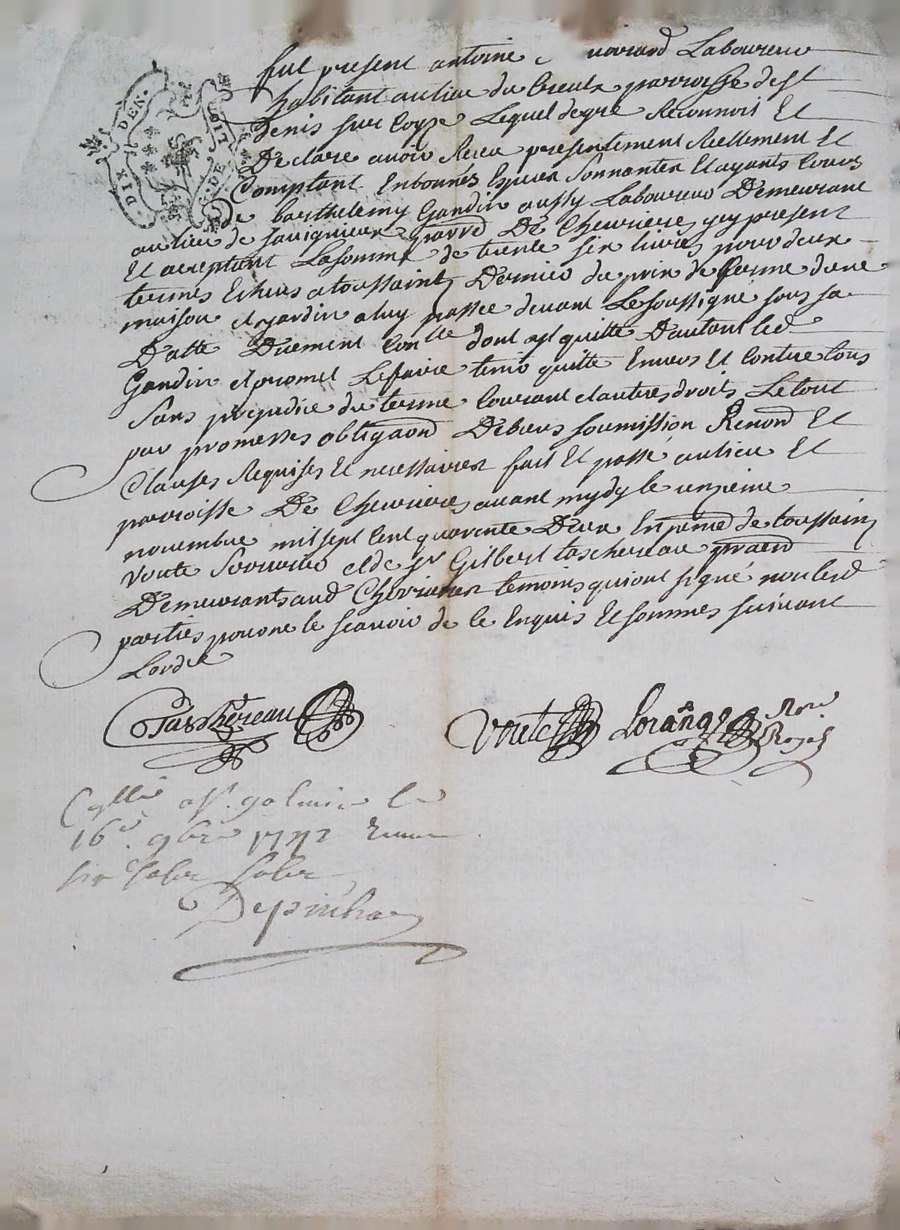 DIX DEN. HUIT DE
fut present antoine Laboureur
habitant au lieu du Creux parroisse de st
Denis sur Coyze Lequel de gré Reconnois Et
Declare avoir Receu presentement Reellement Et
Comptant En bonnes Espèces Sonnantes Et ayants Cours
De barthelemy Gandin aussy Laboureur Demeurant
au lieu de Savignieux parrd De Chevrieres y present
Et acceptant La somme de trente six livres pour deux
termes Echeus a toussaints Dernier du prix de ferme d'une
maison et jardin a luy passée devant Le soussigné sous sa
Datte Duement Conlle dont est quitte D'autant led
Gandin et promet Le faire tenir quitte Envers Et Contre tous
Sans prejudice du terme Courant et autres droits Le tout
par promesses obligaond Debiens soumission Renond Et
Clauses Requises Et necessaires fait Et passé au lieu Et
parroisse De Chevrieres avant mydy le unzieme
novembre mil sept Cent quarente Deux En pnce de toussain
Voute et de sr Gilbert taschereau
Demeurants aud Chevrieres temoins qui ont signé non lesd
parties pour ne le scavoir de ce Enquis Et sommés suivant
Lordce
Taschereau
Voute Lorange Nore Royal
Cllé a st galmier le
16e 9bre 1742
six